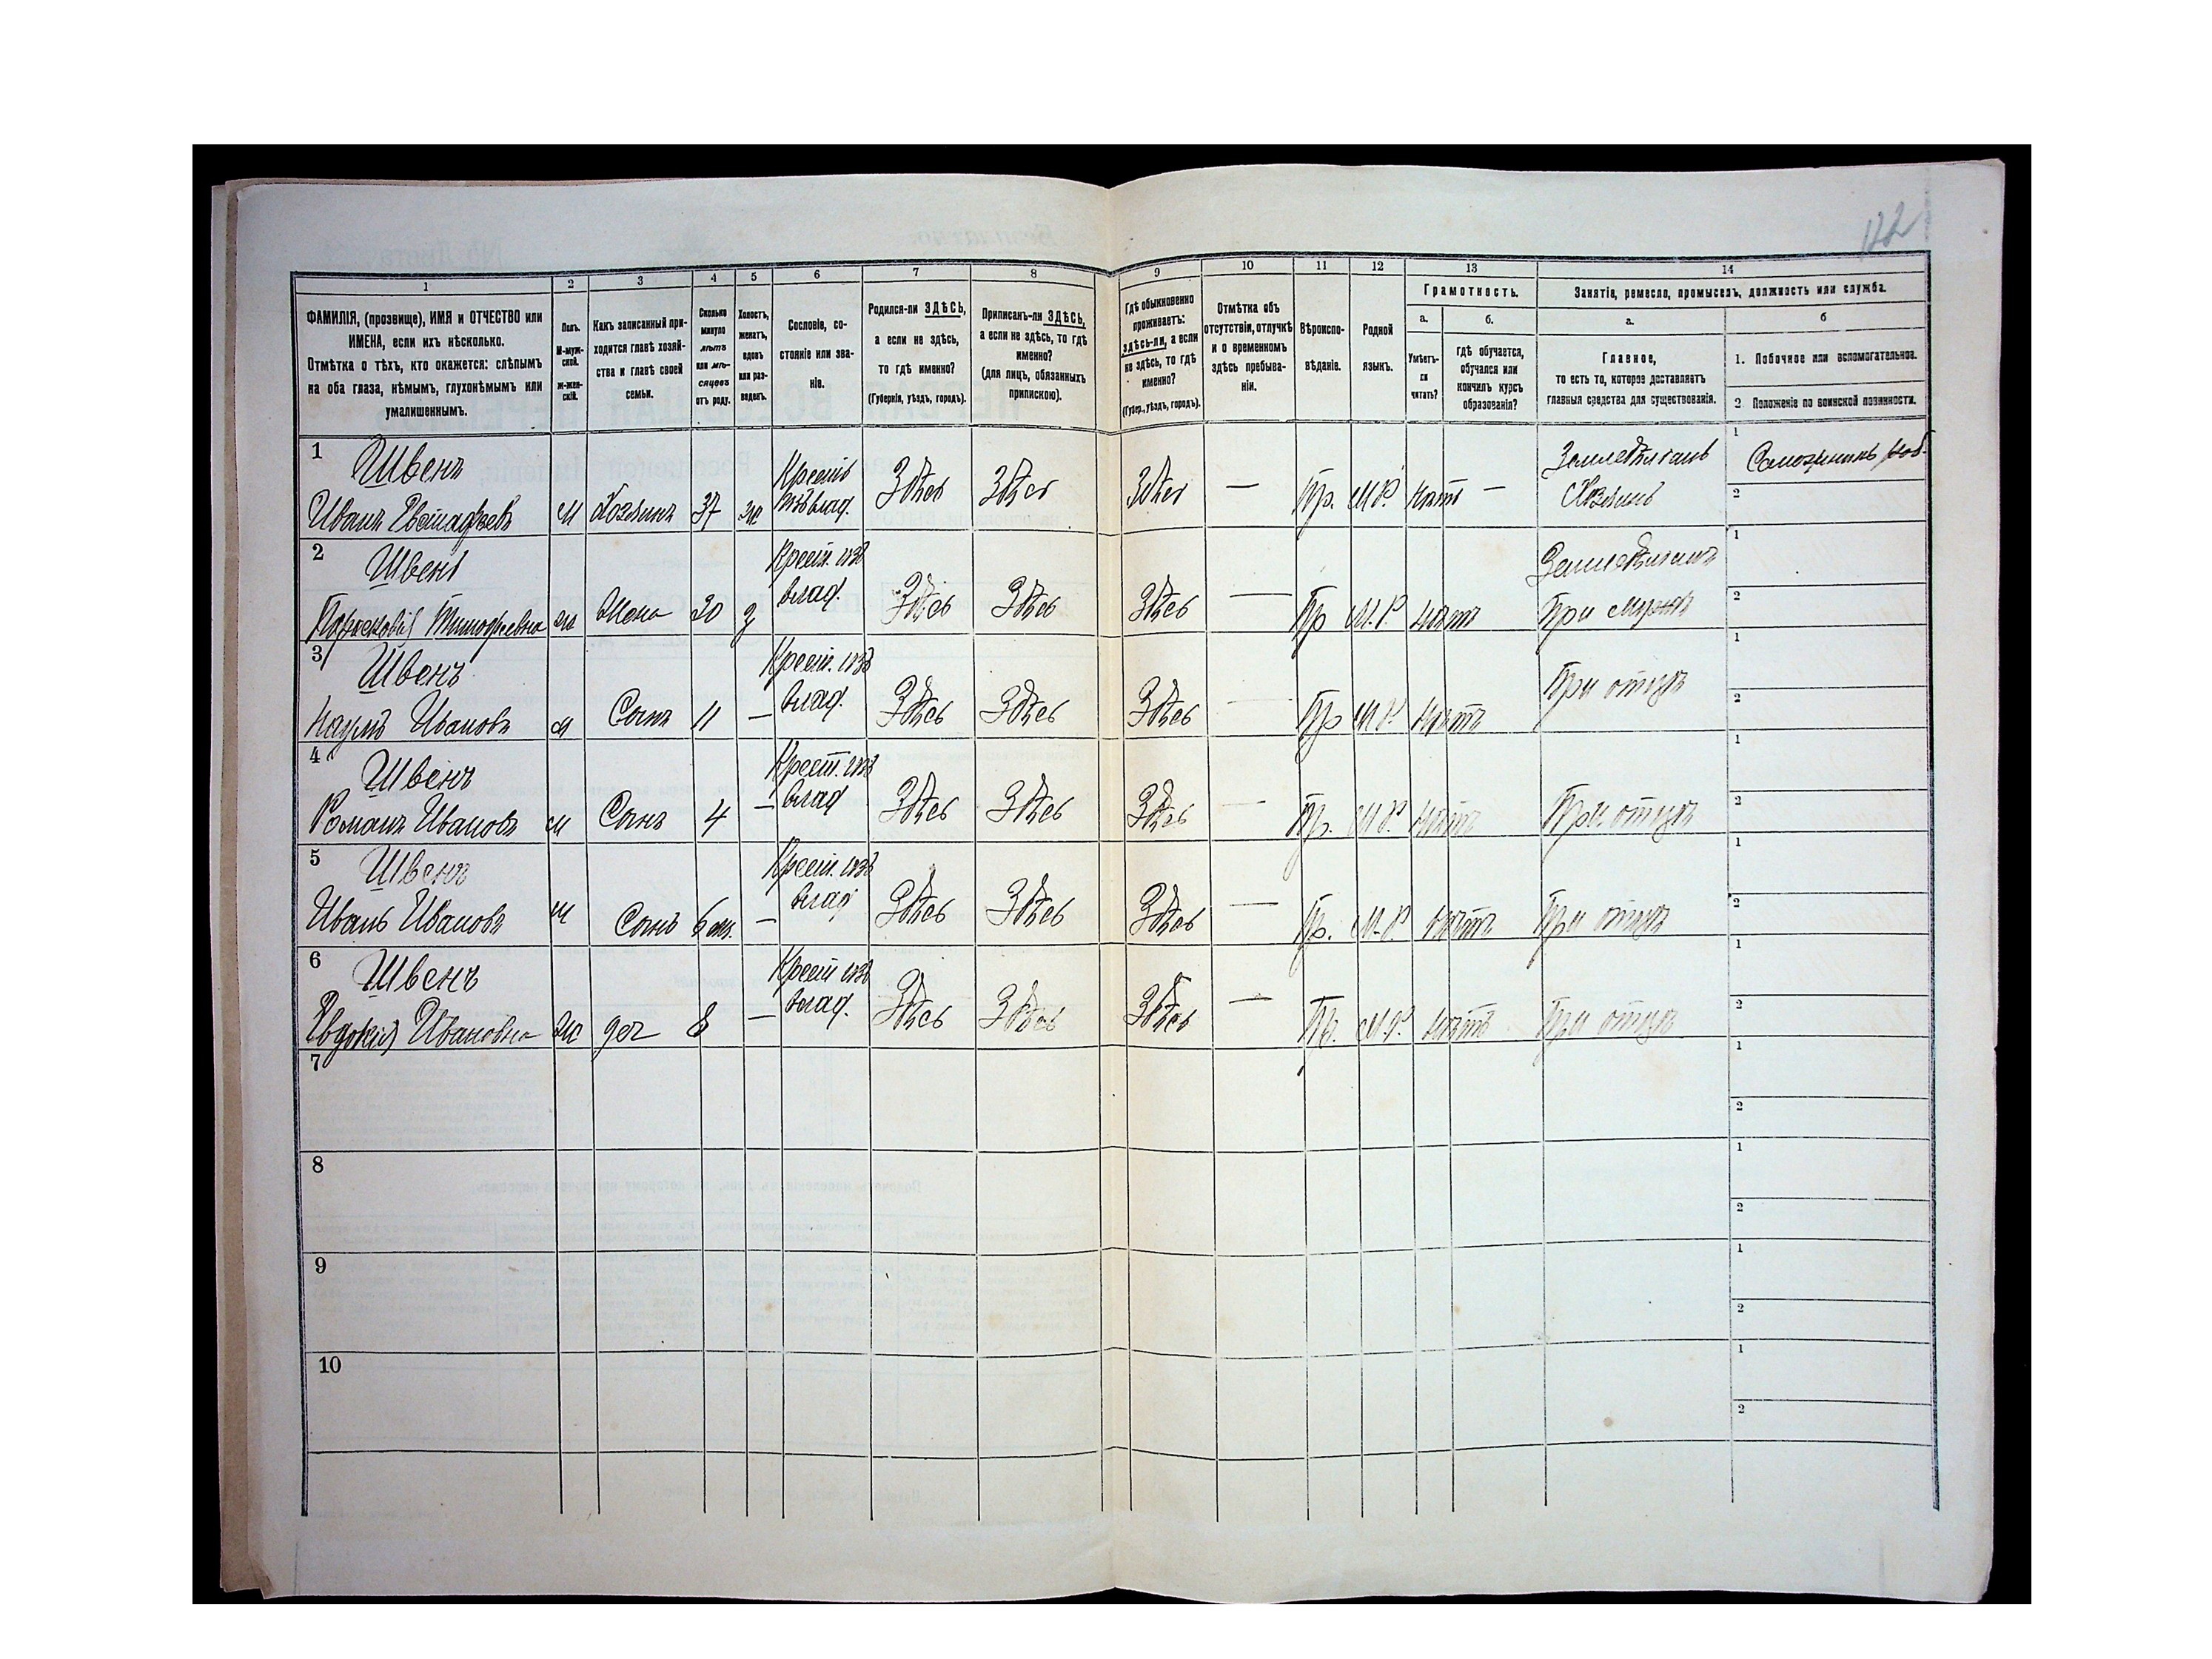 122
1 2 3 4 5 6 7 8 9 10 11 12 13 14
ФАМИЛІЯ, (прозвище), ИМЯ и ОТЧЕСТВО или ИМЕНА, если ихъ нѣсколько.
Отмѣтка о тѣхъ, кто окажется: слѣпымъ на оба глаза, нѣмымъ, глухонѣмымъ или умалишеннымъ.
Полъ. М-мужской. ж-женскій.
Какъ записанный приходится главѣ хозяйства и главѣ своей семьи.
Сколько минуло лѣтъ или мѣсяцевъ отъ роду.
Холостъ, женатъ, вдовъ или разведенъ.
Сословіе, состояніе или званіе.
Родился-ли ЗДѢСЬ, а если не здѣсь, то гдѣ именно? (Губернія, уѣздъ, городъ).
Приписанъ-ли ЗДѢСЬ, а если не здѣсь, то гдѣ именно? (для лицъ, обязанныхъ припискою).
Гдѣ обыкновенно проживаетъ: здѣсь-ли, а если не здѣсь, то гдѣ именно? (Губер., уѣздъ, городъ).
Отмѣтка объ отсутствіи, отлучкѣ и о временномъ здѣсь пребываніи.
Вѣроисповѣданіе.
Родной языкъ.
Грамотность.
а. Умѣетъ-ли читать?
б. гдѣ обучается, обучался или кончилъ курсъ образованія?
Занятіе, ремесло, промыселъ, должность или служба.
а. Главное, то есть то, которое доставляетъ главныя средства для существованія.
б
1. Побочное или вспомогательное.
2. Положеніе по воинской повинности.
1 Швенъ Крестьь Земледѣлецъ 1
Иванъ Евстафьевъ М Хозяинъ 37 ж влад. Здѣсь Здѣсь Здѣсь — Пр. М.Р. нѣтъ — Хозяинъ 2
2 Швенъ Крест. изъ Земледѣліемъ 1
Тимофеевна ж Жена 30 з влад. Здѣсь Здѣсь Здѣсь — Пр М.Р. нѣтъ При мужѣ 2
3 Швенъ Крест. изъ 1
Наумъ Ивановъ м Сынъ 11 — влад. Здѣсь Здѣсь Здѣсь — Пр М.Р. нѣтъ При отцѣ 2
4 Швенъ Крест. изъ 1
Романъ Ивановъ м Сынъ 4 — влад Здѣсь Здѣсь Здѣсь — Пр. М.Р. нѣтъ При отцѣ 2
5 Швенъ Крест. изъ 1
Иванъ Ивановъ м Сынъ 6 мѣс. — влад Здѣсь Здѣсь Здѣсь — Пр. М.Р. нѣтъ При отцѣ 2
6 Швенъ Крест изъ 1
Евдокія Ивановна ж доч 8 — влад. Здѣсь Здѣсь Здѣсь — Пр. М.Р. нѣтъ При отцѣ 2
7 1
2
8 1
2
9 1
2
10 1
2